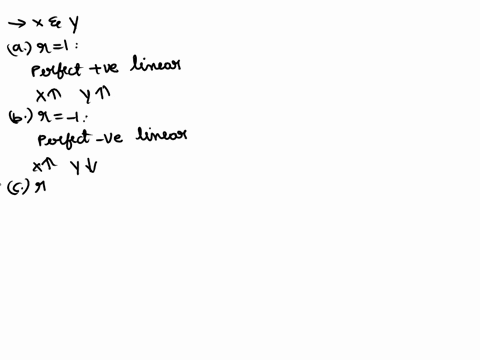 → x & y
(a.) r=1:
Perfect +ve linear
x↑ y↑
(b.) r=-1:
Perfect -ve linear
x↑ y↓
(c.) r